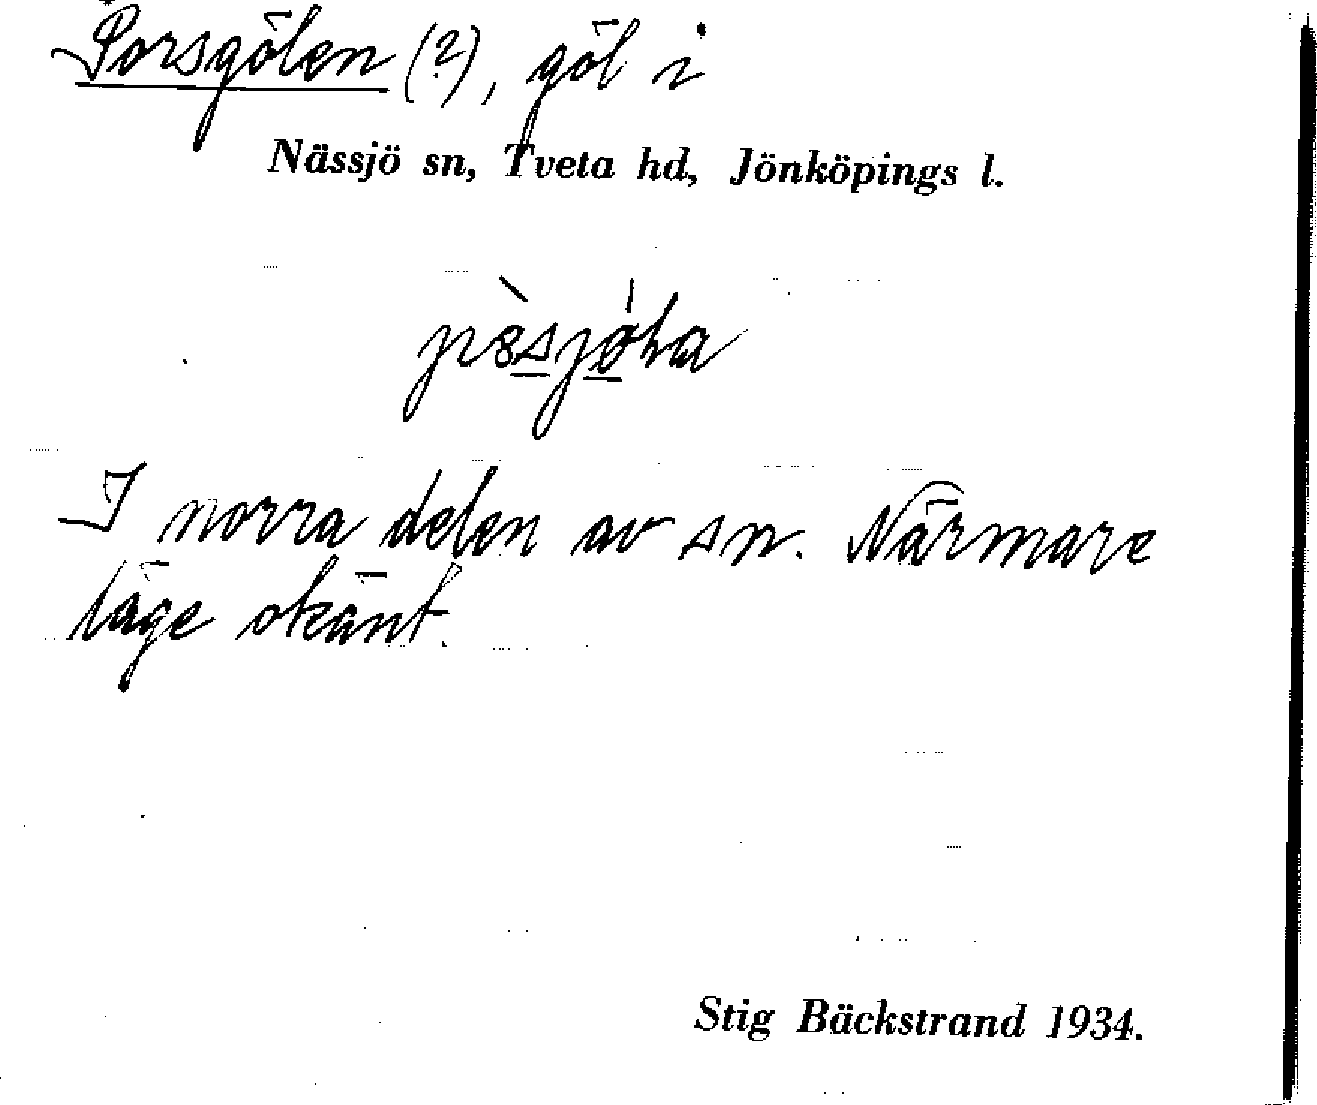 Porsgölen (?), göl i
Nässjö sn, Tveta hd, Jönköpings l.
I norra delen av sn. Närmare
läge okänt.
Stig Bäckstrand 1934.